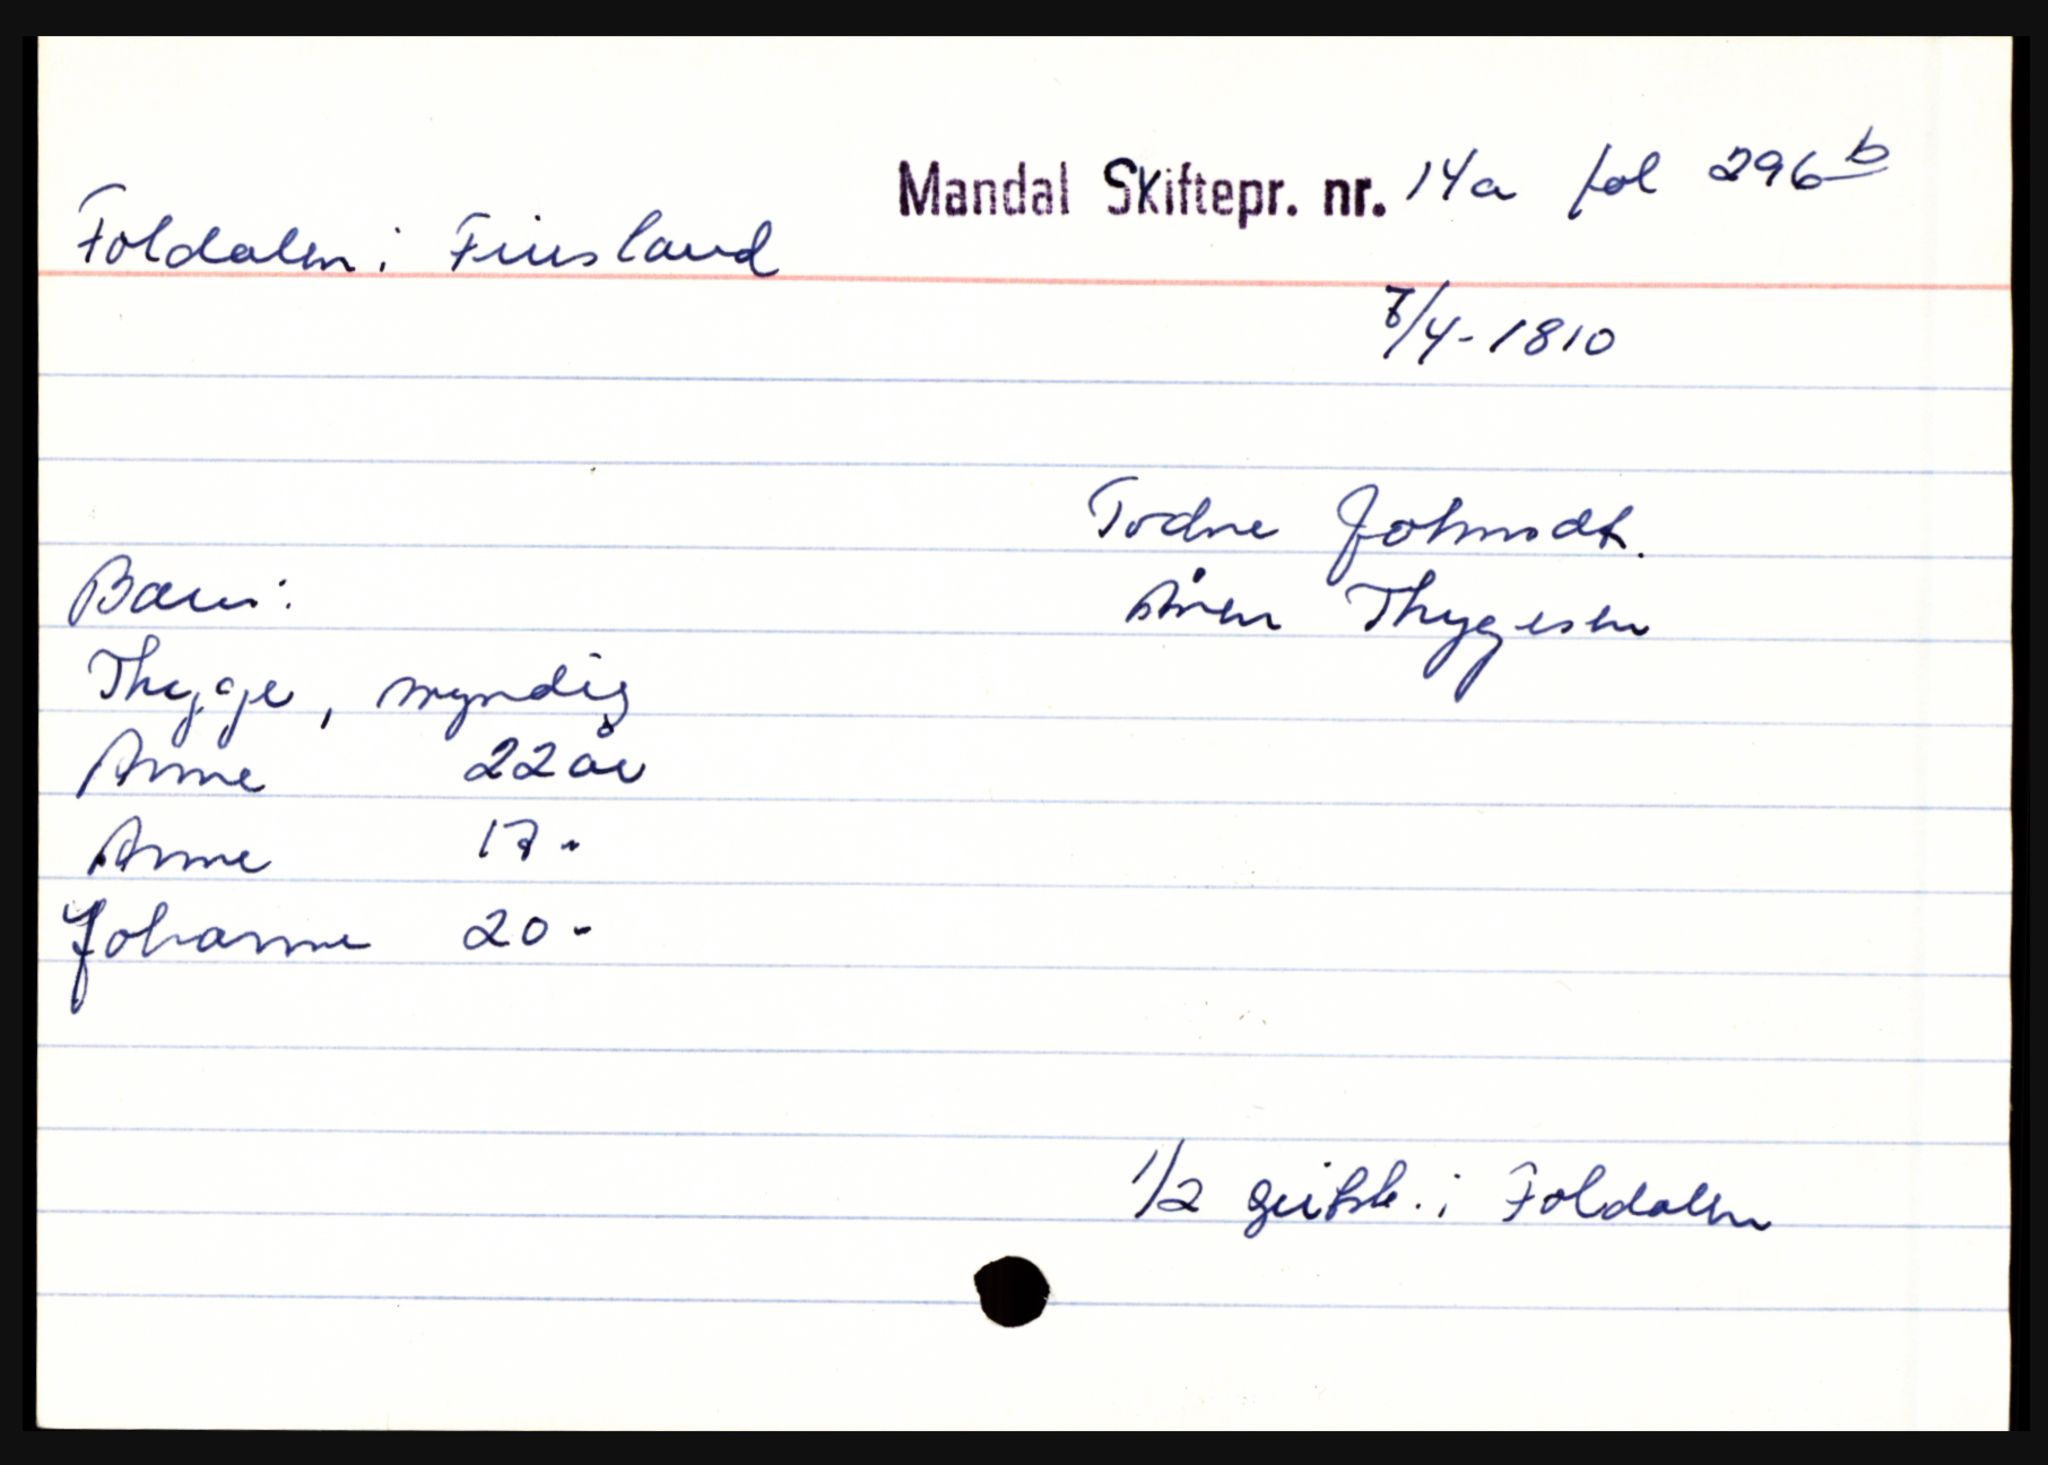 Mandal Skiftepr. nr. 14a fol 296 b
Foldalen i Finsland
7/4-1810
Todne Johnsdt.
Sören Thygesen
Barn:
Thygge, myndig
Anne 22 år
Anne 17 -
Johanne 20 -
1/2 hud i Foldalen